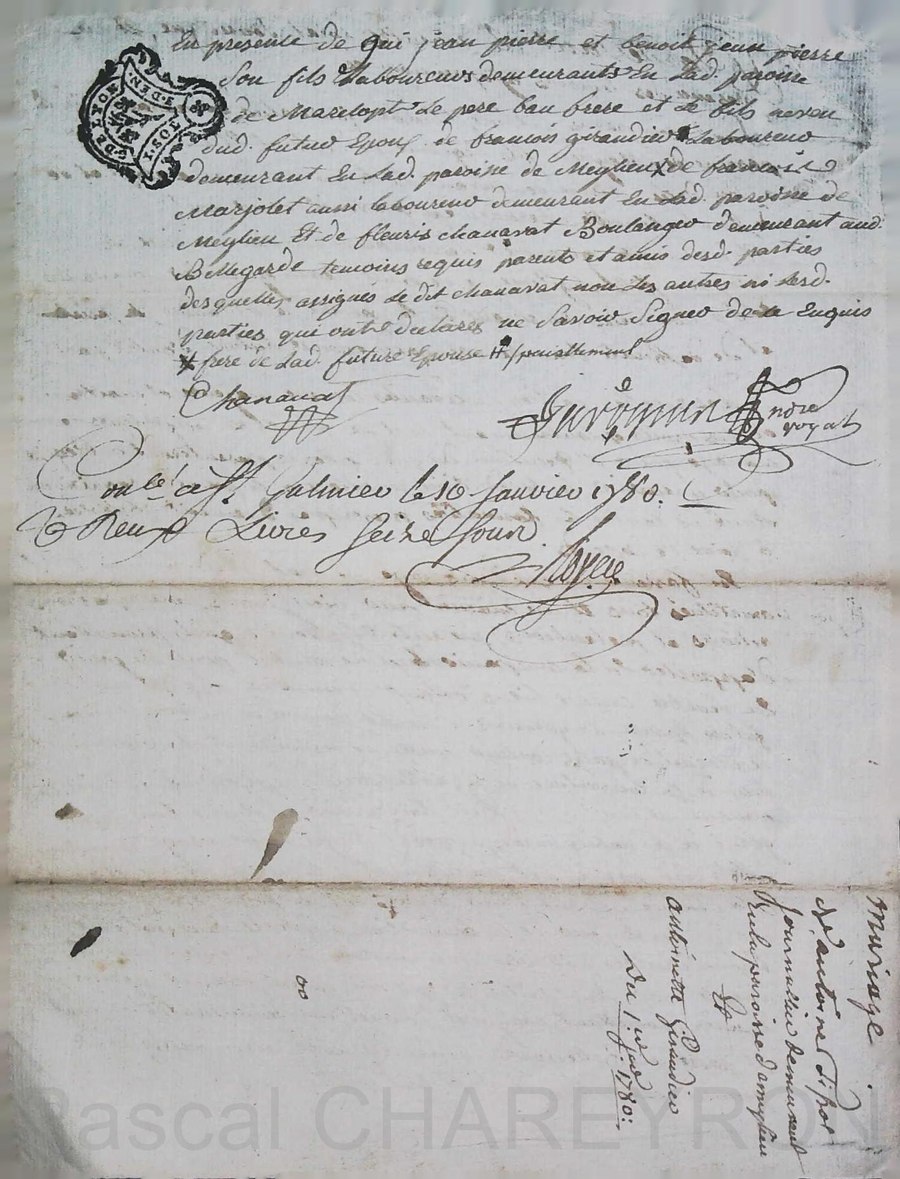 En presence de qui jean pierre et benoit jean pierre
son fils Laboureurs demeurants En Lad. paroisse
de Marclopt Le pere bau frere et Le fils neveu
dud. futur Epoux de françois giraudier Laboureur
demeurant En Lad. paroisse de Meylieu X de françois
Marjolet aussi laboureur demeurent En Lad. paroisse de
Meylieu Et de fleuris chanavat Boulanger demeurant aud.
Bellegarde temoins requis parents et amis desd. parties
desquelles assignés Le dit chanavat non Les autres ni Lesd.
parties qui onts declarés ne Savoir Signer de ce Enquis
X frere de Lad. future Epouse
Chanavat
ndre
royal
Conlé a St. Galmier le 10 Janvier 1780.
Livres Seize Sous
Mariage
D'antoine
Journalier demeurant
paroisse d'ameylieu
Et
antoinette Giraudier
Du 1.er 1780:
Pascal CHAREYRON